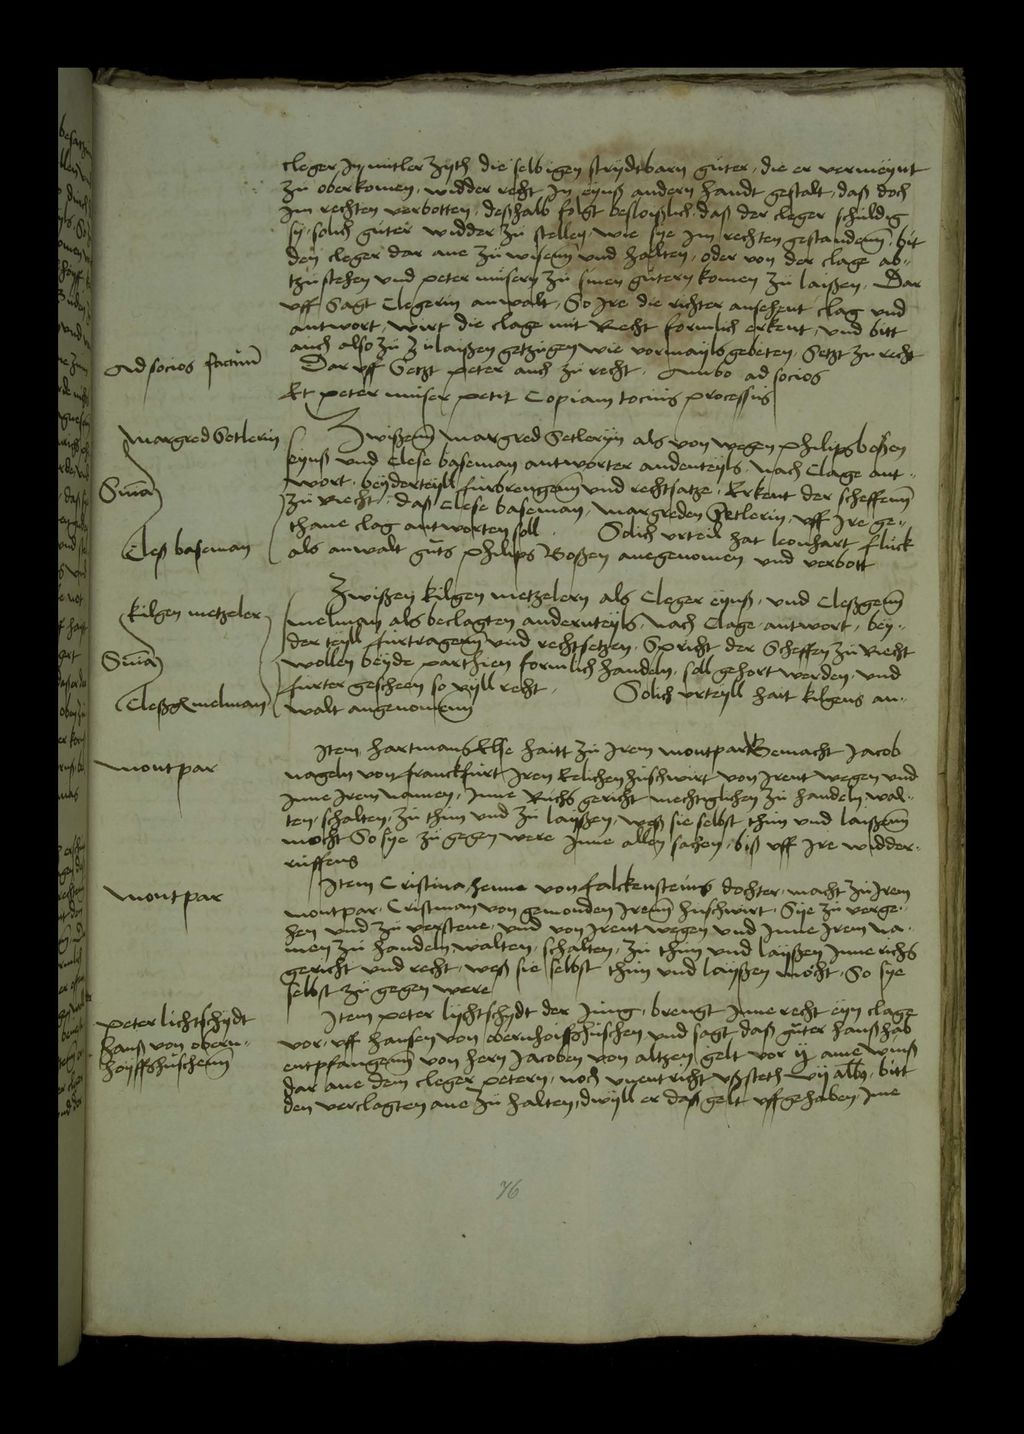 cleger In mitler Zyth die selbigen strydtbarn guter, die er vermeynt
zu oberkomen, widder recht In eynß andern handt gestalt, daß doch
Im rechten verbotten, deßhalb folgt besloißlich daß der cleger schuldig
sy, solich guter widder zu stellen, wie sye Im rechten gestanden, bit
den cleger dar ane zu wisen und halten, oder von der clage ab¬
tzustehen und peter musern zu sinen gutern komen zu laißen, Dar
uff Sagt Clegerin anwalt, So Ire die richter ansehent clag und
antwort, wirt die clage mit Recht formlich erkent, und bitt
auch also zu Zulaißen getzugen wie vormayls gebeten, Setzt zu recht
Ad socios factum
Dar uff Setzt peter auch zu recht, Ambo ad socios
Et peter muser petit Copiam tocius processus
Margred Setlerin
Sententia
Cleß baseman
Zwißen Margred Setleryn als von wegen philips boßen
eynß und Clese baseman antworter andernteyls, Nach Clage ant¬
wort, beyderteyll furbrengen und rechtsatze, Erkent der scheffenn
zu Recht, daß Clese baseman, Margreden Setlerin, uff Ire ge¬
thane clag antworten soll Solich urteil hat leonhart fluck
als anwalt guts philips Boßen anegenomen und verbott
kilgen metzeler
Sententia
Cleßgen melman
Zwißen kilgen metzelern als Cleger eynß, und Cleßgenn
melman als beclagten andernteyls, Nach Clage antwort, bey¬
der teyll furtragenn und rechtsetzen, Spricht der Scheffen zu Recht
wollen beyde parthien formlich handeln, soll gehort werden, und
furter gescheen so vyll recht, Solich urteyll hait kilgens an¬
walt angenomenn
montpar
Item hartmans Else haitt zu Irem montpar Gemacht Jacob
nageln von franckfurt Iren Eelichen hußwirt von Irent wegen und
Inne Irem namen, Inne Richs gericht mechtiglichen zu handeln, wal¬
ten, schalten, zu thun und zu laißen, weß sie selbst thun und laißenn
mocht So sye zu gegen were Inne allen sachen, biß uff Ire widder¬
ruffens
montpar
Item Cristina, henne von falckensteins dochter, macht zu Irem
montpar, Cristman von gemonden Irenn hußwirt, Sye zu verge¬
hen und zu verstene, und von Irent wegen und Inne Irem na¬
men zu handeln, walten, schalten, zu thun und laißen Inne richs
gericht und recht, weß sie selbst thun und laißen mocht, So sye
selbst zu gegen were
peter lichtschydt
hanß von obern¬
hoyffhußhenn
Item peter lychtschydt der Jung, brengt Inne recht eyn clage
vor, uff hansen von obernhoiffhußhen und sagt daß guter hanß hab
entpfangenn von hern Jacoben von altzen gelt vor ij ame wins
dar ane dem cleger petern, noch unentricht ußsteth vij albus, bitt
den verclagten ane zu halten, dwyll er daß gelt uffgehaben, Ime
76